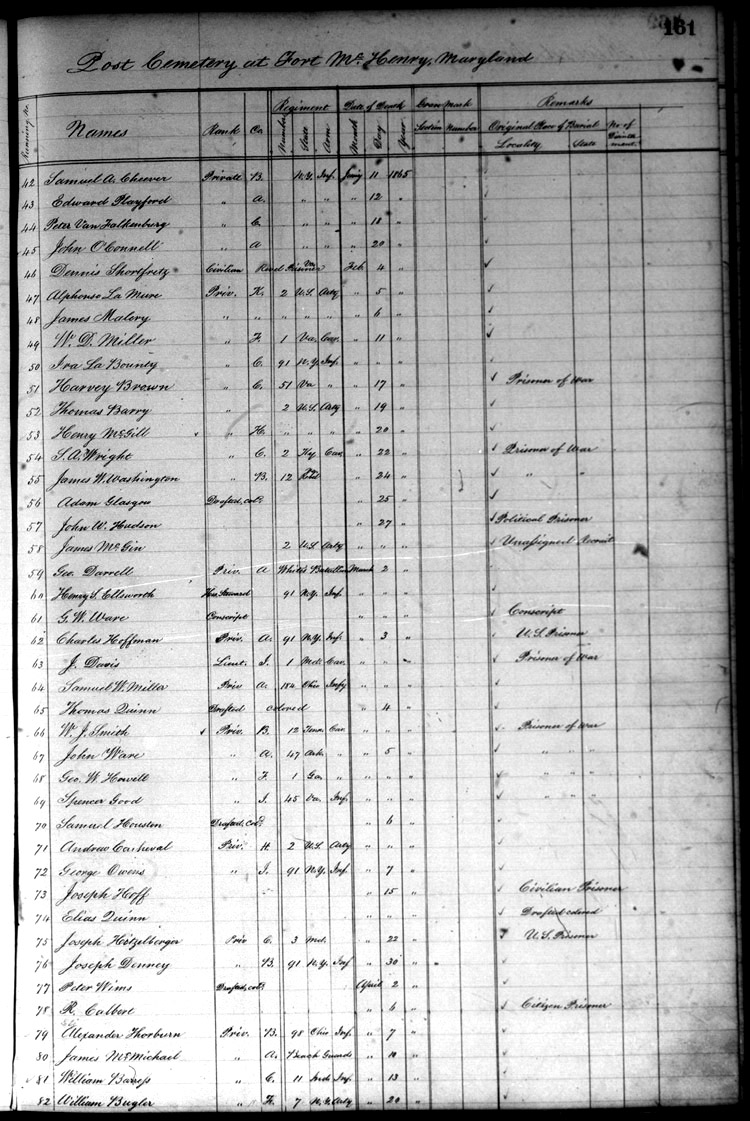 161
Post Cemetery at Fort McHenry, Maryland
Running No. Names Rank Co. Regiment Date of Death Grave Mark Remarks
Number State Arm Month Day Year Section Number Original Place of Burial No. of
Locality State
42 Samuel A. Cheever Private B. N.Y. Inf. 11 1865
43 Edward Playford " A. " " " 12 "
44 Peter Van Falkenburg " C. " " " 18 "
45 John O'Connell " A " " " 20 "
46 Dennis Civilian Prisoner Feb. 4 "
47 Alphonso La Mure Priv. K. 2 U.S. Arty " 5 "
48 James Malory " " " " " " 6 "
49 W. D. Miller " F. 1 Va. Cav. " 11 "
50 Ira La Bounty " C. 91 N.Y. Inf. " " "
51 Harvey Brown " C. 51 Va " " 17 " Prisoner of War
52 Thomas Barry " 2 U.S. Arty " 19 "
53 Henry McGill " H. " " " " 20 "
54 S. A. Wright " C. 2 Ky. Cav. " 22 " Prisoner of War
55 James W. Washington " B. 12 " 24 " " "
56 Adam Glasgow Drafted, cold. " 25 "
57 John W. Hudson " 27 " Political Prisoner
58 James McGin 2 U.S. Arty " " " Unassigned Recruit
59 Geo. Darrell Priv. A White's Batallion March 2 "
60 Henry S. Ellsworth Hos. Steward 91 N.Y. Inf. " " "
61 G. W. Ware Conscript " " " Conscript
62 Charles Hoffman Priv. A. 91 N.Y. Inf. " 3 " U.S. Prisoner
63 J. Davis Lieut. I. 1 Md. Cav. " " " Prisoner of War
64 Samuel W. Miller Priv A. 184 Ohio Infy " " "
65 Thomas Quinn Drafted colored " 4 "
66 W. J. Smith Priv. B. 12 Tenn. Cav. " " " Prisoner of War
67 John Ware " A. 47 Ark. " " 5 " " " "
68 Geo. W. Howell " F. 1 Ga. " " " " " " "
69 Spencer Good " I. 45 Va. Inf. " " " " " "
70 Samuel Houston Drafted, cold. " 6 "
71 Andrew Priv. H 2 U.S. Arty " " "
72 George Owens " I. 91 N.Y. Inf. " 7 "
73 Joseph Hoff " 15 " Civilian Prisoner
74 Elias Quinn " " " Drafted colored
75 Joseph Hotzelberger Priv C. 3 Md. " 22 " U.S. Prisoner
76 Joseph Denney " B. 91 N.Y. Inf " 30 "
77 Peter Wims Drafted, cold. April 2 "
78 R. Culbert " 6 " Citizen Prisoner
79 Alexander Thorburn Priv. B. 98 Ohio Inf. " 7 "
80 James McMichael " A. Guards " 10 "
81 William " C. 11 Ind. Inf. " 13 "
82 William Bugler " H. 7 N.Y. Arty " 20 "